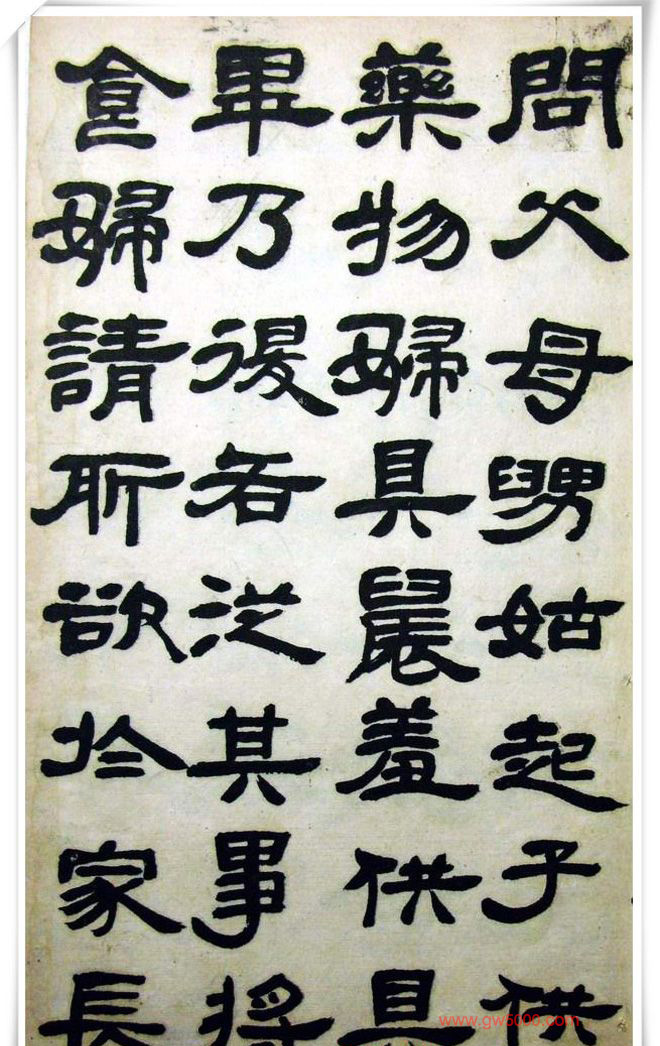 問父母舅姑起子供
藥物婦具晨羞供具
畢乃退各從其事將
食婦請所欲於家長
www.gw5000.com